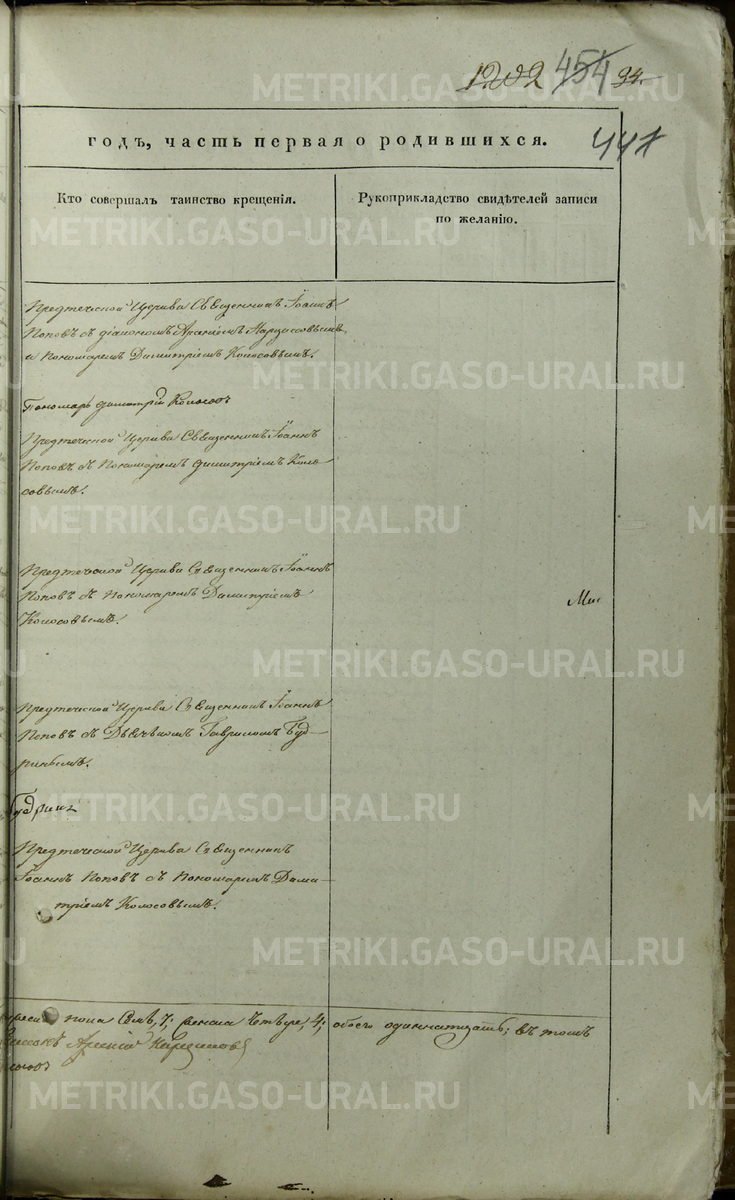 1202 454 94.
447
годъ, часть первая о родившихся.
Кто совершалъ таинство крещенія.
Рукоприкладство свидѣтелей записи
по желанію.
Предтеческой Церкви Священникъ Іоаннъ
Поповъ съ діакономъ
и Пономаремъ Димитріемъ Колосовымъ.
Пономарь Димитрій Колосовъ
Предтеческой Церкви Священникъ Іоаннъ
Поповъ съ Пономаремъ Димитріемъ Коло
совымъ.
Предтеческой Церкви Священникъ Іоаннъ
Поповъ съ Пономаремъ Димитріемъ
Колосовымъ.
Предтеческой Церкви Священникъ Іоаннъ
Поповъ съ Дьячкомъ Гавриломъ Буд-
ринымъ.
Будринъ
Предтеческой Церкви Священникъ
Іоаннъ Поповъ съ Пономаремъ Дими-
тріемъ Колосовымъ.
пола Семь, 7; женска Четыре, 4; обоего одиннатцать; въ томъ
Арсеній
METRIKI.GASO-URAL.RU